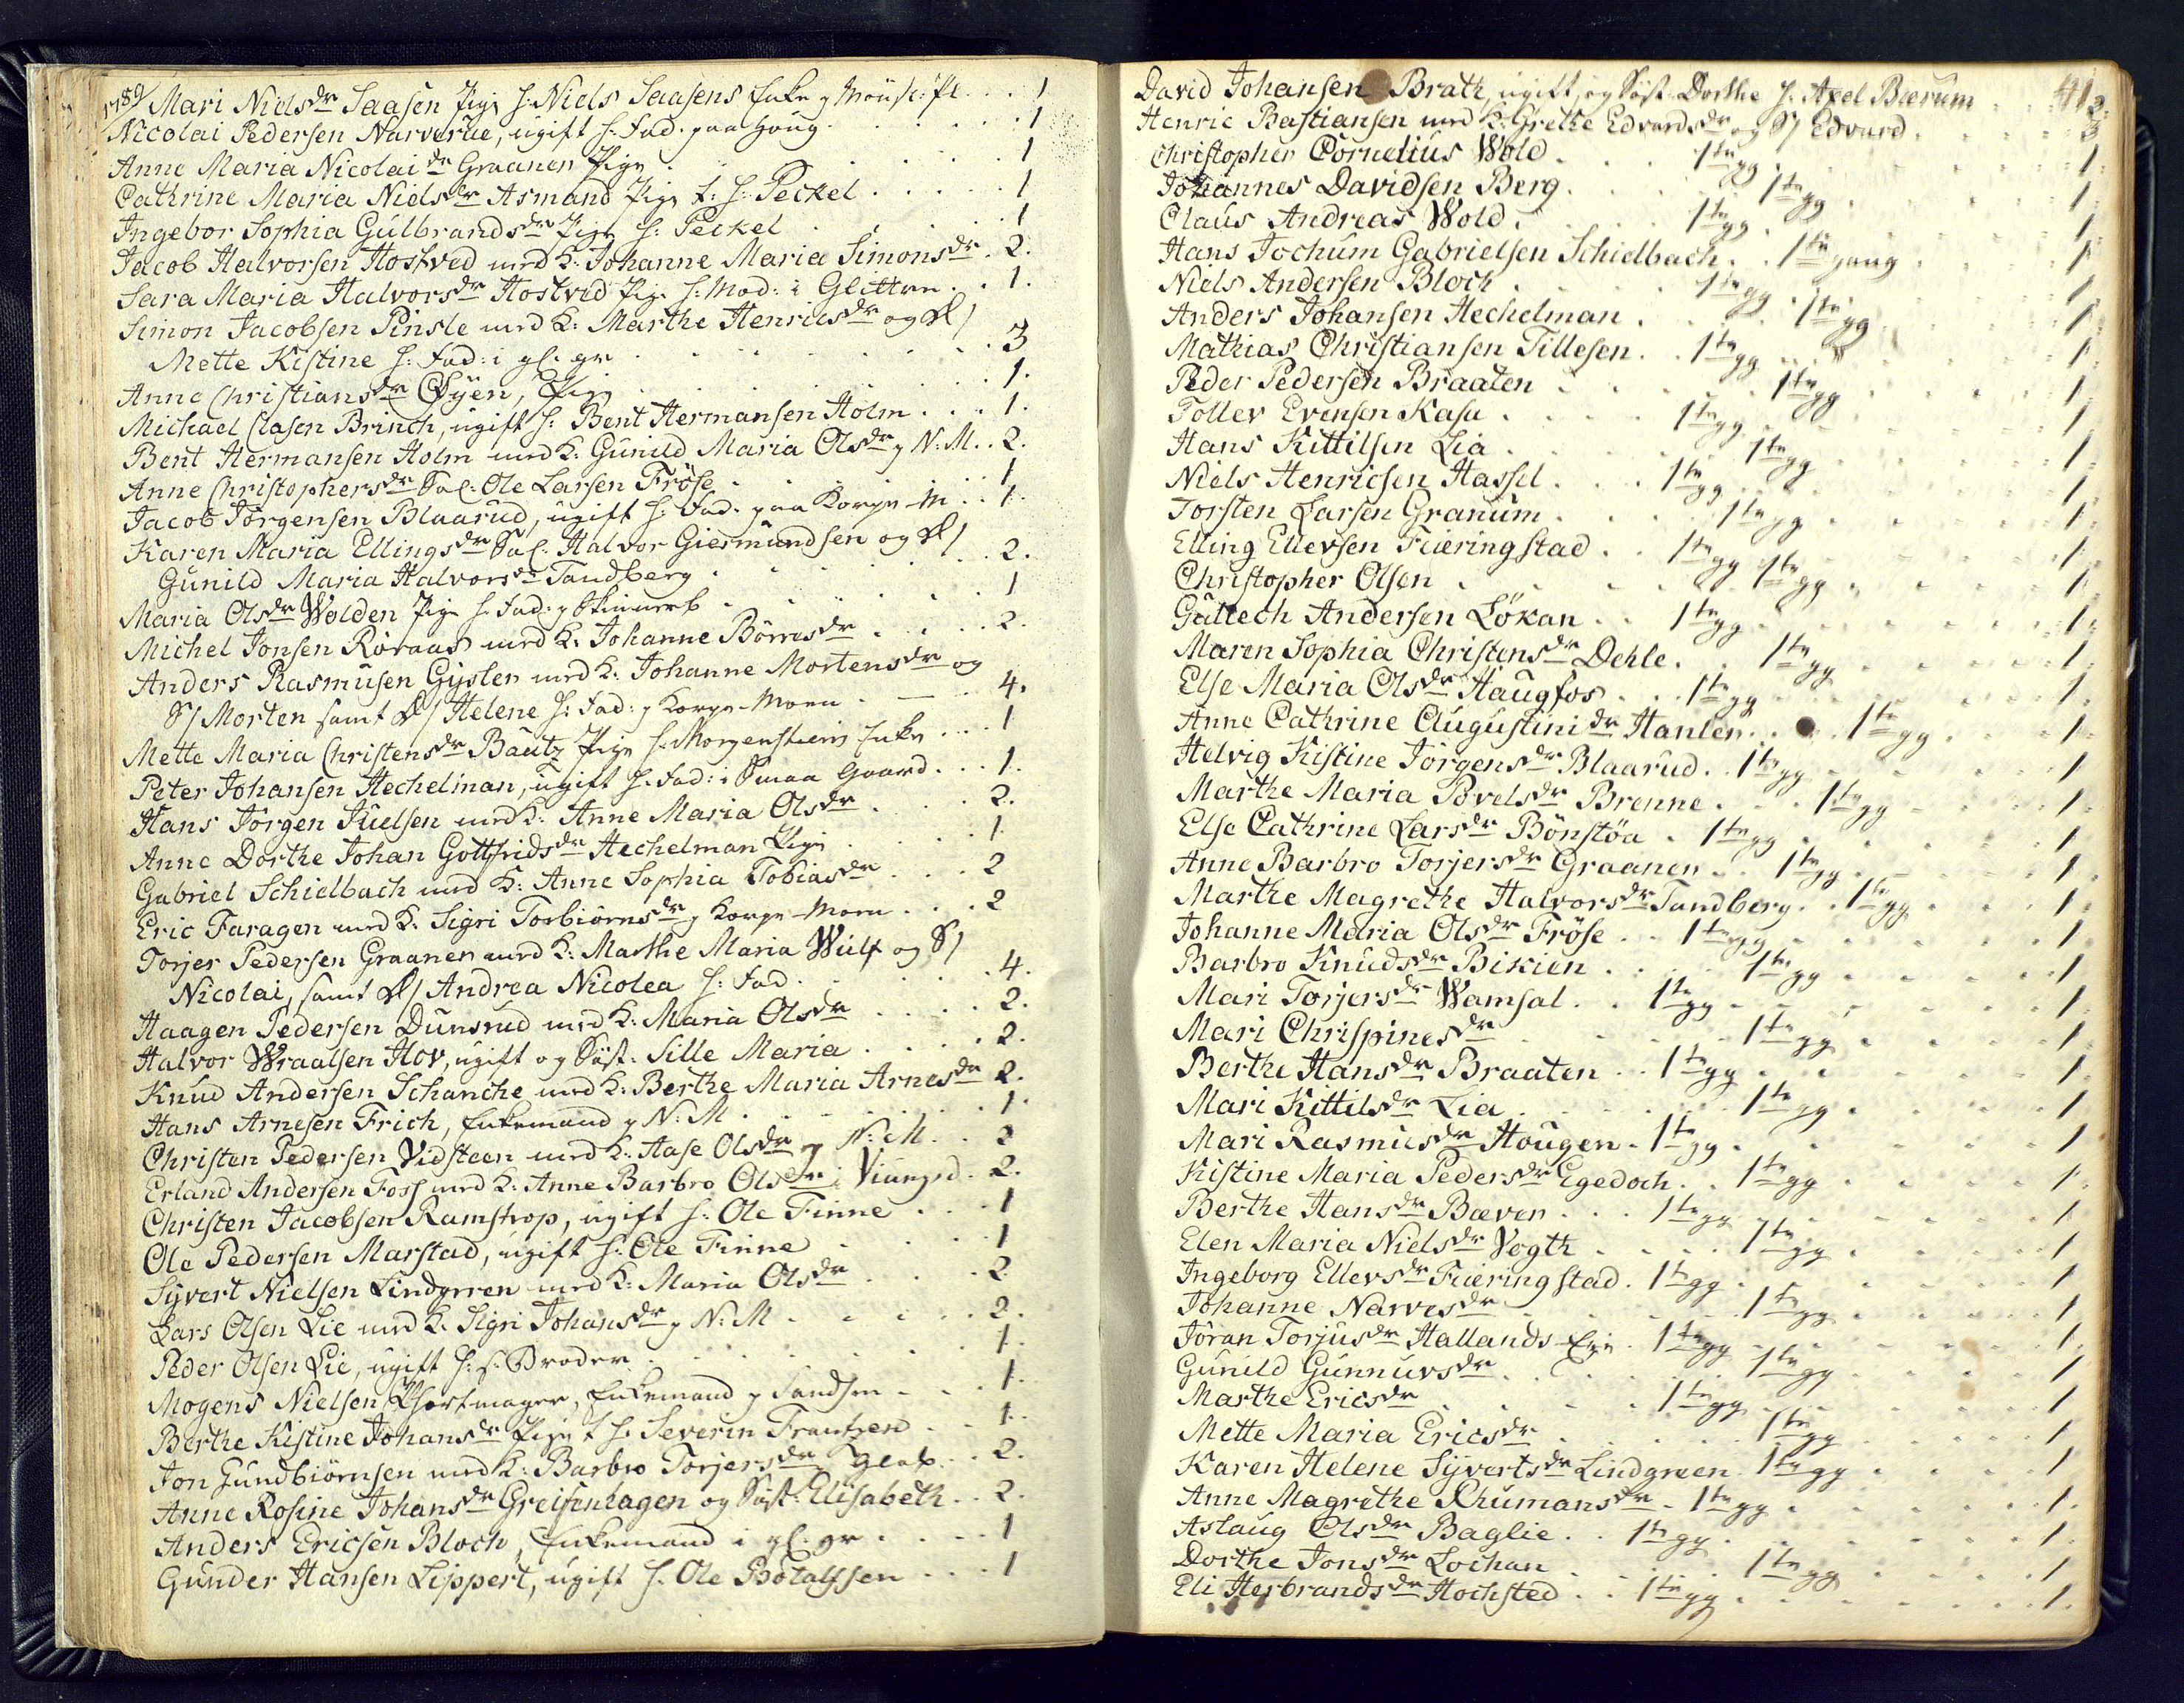 1789/ Mari Nielsdr Saasen Pige h: Niels Saasens Enke 1
Nicolai Pedersen Narverue, ugift h: Fad. paa Houg 1
Anne Maria Nicolaidr Graanen Pige 1
Cathrine Maria Nielsdr Asmand Pige t. h: Peckel 1
Ingebor Sophia Gulbrandsdr Pige h: Peckel 1
Jacob Halvorsen Hostved med K: Johanne Maria Simonsdr 2.
Sara Maria Halvorsdr Hostvid Pige h: Mod: i Glitten 1.
Simon Jacobsen Pinsle med K: Marthe Henricsdr og D/
Mette Kistine h: Fad: i gl. gr 3
Anne Christiansdr Øyen, Pige 1.
Michael Clasen Brinch, ugift h: Bent Hermansen Holm 1.
Bent Hermansen Holm med K: Gunild Maria Olsdr p N:M. 2.
Anne Christophersdr Sal: Ole Larsen Fröse 1
Jacob Jörgensen Blaarud, ugift h: Fad. paa Korpe-M 1.
Karen Maria Ellingsdr Sal: Halvor Giermundsen og D/
Gunild Maria Halvorsdr Tandberg 2.
Maria Olsdr Wolden Pige h: Fad: p 1
Michel Jonsen Röraas med K: Johanne Börresdr 2.
Anders Rasmusen Gyslen med K: Johanne Mortensdr og
S/ Morten samt D/ Helene h: Fad: p Korpe-Moen 4.
Mette Maria Christensdr Bautz Pige h: Morgenstiens Enke 1
Peter Johansen Hechelman, ugift h: Fad: i Smaa Gaard 1.
Hans Jörgen Juelsen med K: Anne Maria Olsdr 2.
Anne Dorthe Johan Gottfridsdr Hechelman Pige 1.
Gabriel Schielbach med K: Anne Sophia Tobiasdr 2
Eric Faragen med K: Sigri Torbiörnsdr p Korpe-Moen 2
Torjer Pedersen Graanen med K: Marthe Maria Wulf og S/
Nicolai, samt D/ Andrea Nicolea h: Fad. 4.
Haagen Pedersen Dunsrud med K: Maria Olsdr 2.
Halvor Wraalsen Hov, ugift og Søst: Sille Maria 2.
Knud Andersen Schanche med K: Berthe Maria Arnesdr 2.
Hans Arnesen Frich, Enkemand p N:M 1.
Christen Pedersen Vidsteen med K: Aase Olsdr p N:M. 2
Erland Andersen Foss med K: Anne Barbro Olsdr i 2.
Christen Jacobsen Ramstrop, ugift h: Ole Finne 1
Ole Pedersen Marstad, ugift h: Ole Finne 1
Syvert Nielsen Lindgreen med K: Maria Olsdr 2.
Lars Olsen Lie med K. Sigri Johansdr p N:M 2.
Peder Olsen Lie, ugift h: s: Broder 1.
Mogens Nielsen, Enkemand p Sandsen 1.
Berthe Kistine Johansdr Pige t h: Severin Frantzen 1.
Jon Gundbiörnsen med K: Barbro Torjersdr 2.
Anne Rosine Johansdr Greisenhagen og Søst: Elisabeth 2.
Anders Ericsen Bloch, Enkemand i gl. gr 1
Gunder Hansen Lippert, ugift h. Ole Botolfsen 1
41
David Johansen Brath, ugift, og Søst Dorthe h. Axel Bærum 2.
Henric Bastiansen med K: Grethe Edvardsdr og S/ Edvard 3
Christopher Cornelius Wold 1te gg 1.
Johannes Davidsen Berg 1te gg 1.
Claus Andreas Wold 1te gg 1.
Hans Jochum Gabrielsen Schielbach 1te gang 1.
Niels Andersen Bloch 1te gg 1.
Anders Johansen Hechelman 1te gg 1.
Mathias Christiansen Tillesen 1te gg 1.
Peder Pedersen Braaten 1te gg 1.
Tollev Evensen Kasa 1te gg 1.
Hans Kittilsen Lia 1te gg 1.
Niels Henricsen Hassel 1te gg 1.
Torsten Larsen Granum 1te gg 1.
Elling Ellevsen Fieringstad 1te gg 1.
Christopher Olsen 1te gg 1.
Gullech Andersen Lökan 1te gg 1.
Maren Sophia Christensdr Dehle 1te gg 1.
Else Maria Olsdr Haugfos 1te gg 1.
Anne Cathrine Augustinidr Hanlen 1te gg 1.
Helvig Kistine Jörgensdr Blaarud 1te gg 1.
Marthe Maria Povelsdr Brenne 1te gg 1.
Else Cathrine Larsdr Bönstöa 1te gg 1.
Anne Barbro Torjersdr Graanen 1te gg 1.
Marthe Magrethe Halvorsdr Tandberg 1te gg 1.
Johanne Maria Olsdr Fröse 1te gg 1.
Barbro Knudsdr Bikien 1te gg 1.
Mari Torjersdr Wamsal 1te gg 1.
Mari Chrispinesdr 1te gg 1.
Berthe Hansdr Braaten 1te gg 1.
Mari Kittilsdr Lia 1te gg 1.
Mari Rasmusdr Hougen 1te gg 1.
Kistine Maria Pedersdr Egedoch 1te gg 1.
Berthe Hansdr Bæver 1te gg 1.
Elen Maria Nielsdr Vogth 1te gg 1.
Ingeborg Ellevsdr Fieringstad 1te gg 1.
Johanne Narvesdr 1te gg 1.
Jöran Torjusdr Hallands-Eje 1te gg 1.
Gunild Gunnuvsdr 1te gg 1.
Marthe Ericsdr 1te gg 1.
Mette Maria Ericsdr 1te gg 1.
Karen Helene Syvertsdr Lindgreen 1te gg 1.
Anne Magrethe Khumansdr 1te gg 1.
Aslaug Olsdr Baglie 1te gg 1.
Dorthe Jonsdr Lochan 1te gg 1.
Eli Herbrandsdr Hochsted 1te gg 1.